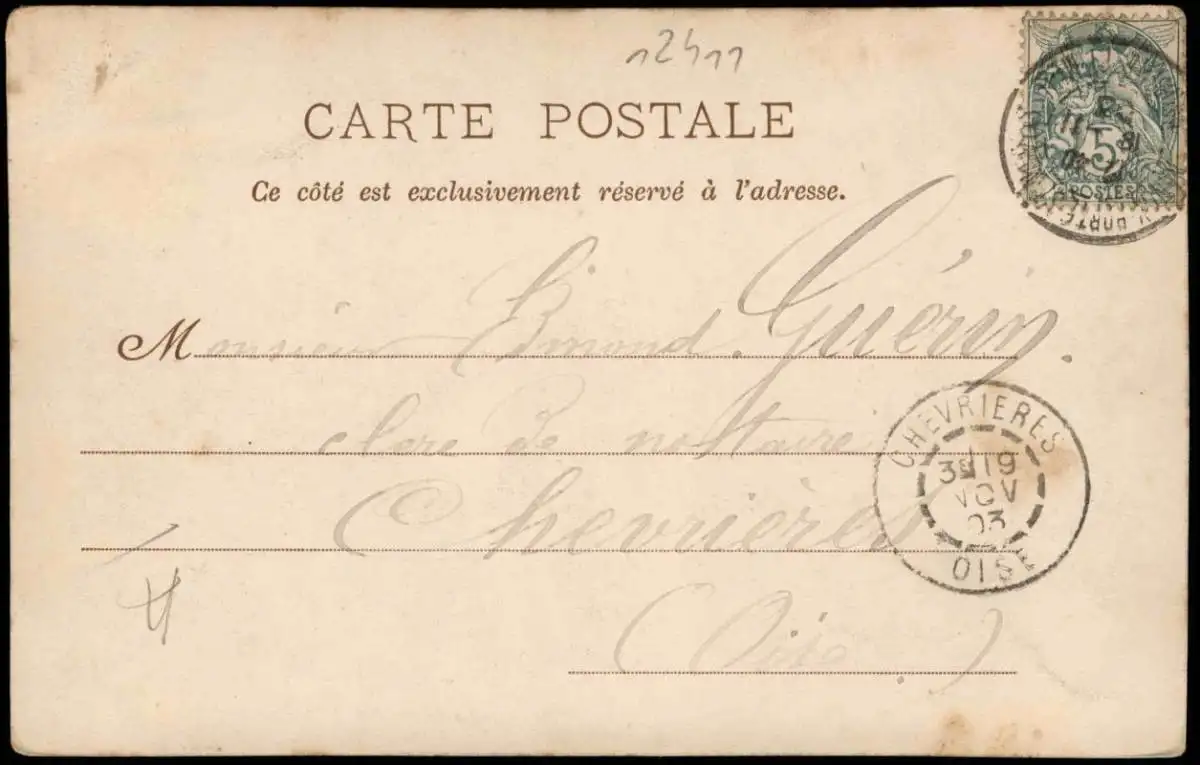 12411
CARTE POSTALE
Ce côté est exclusivement réservé à l'adresse.
5
POSTES
Monsieur Edmond Guérin.
clerc de nottaire
Chevrières
(Oise)
CHEVRIERES
3E 19
NOV
03
OISE